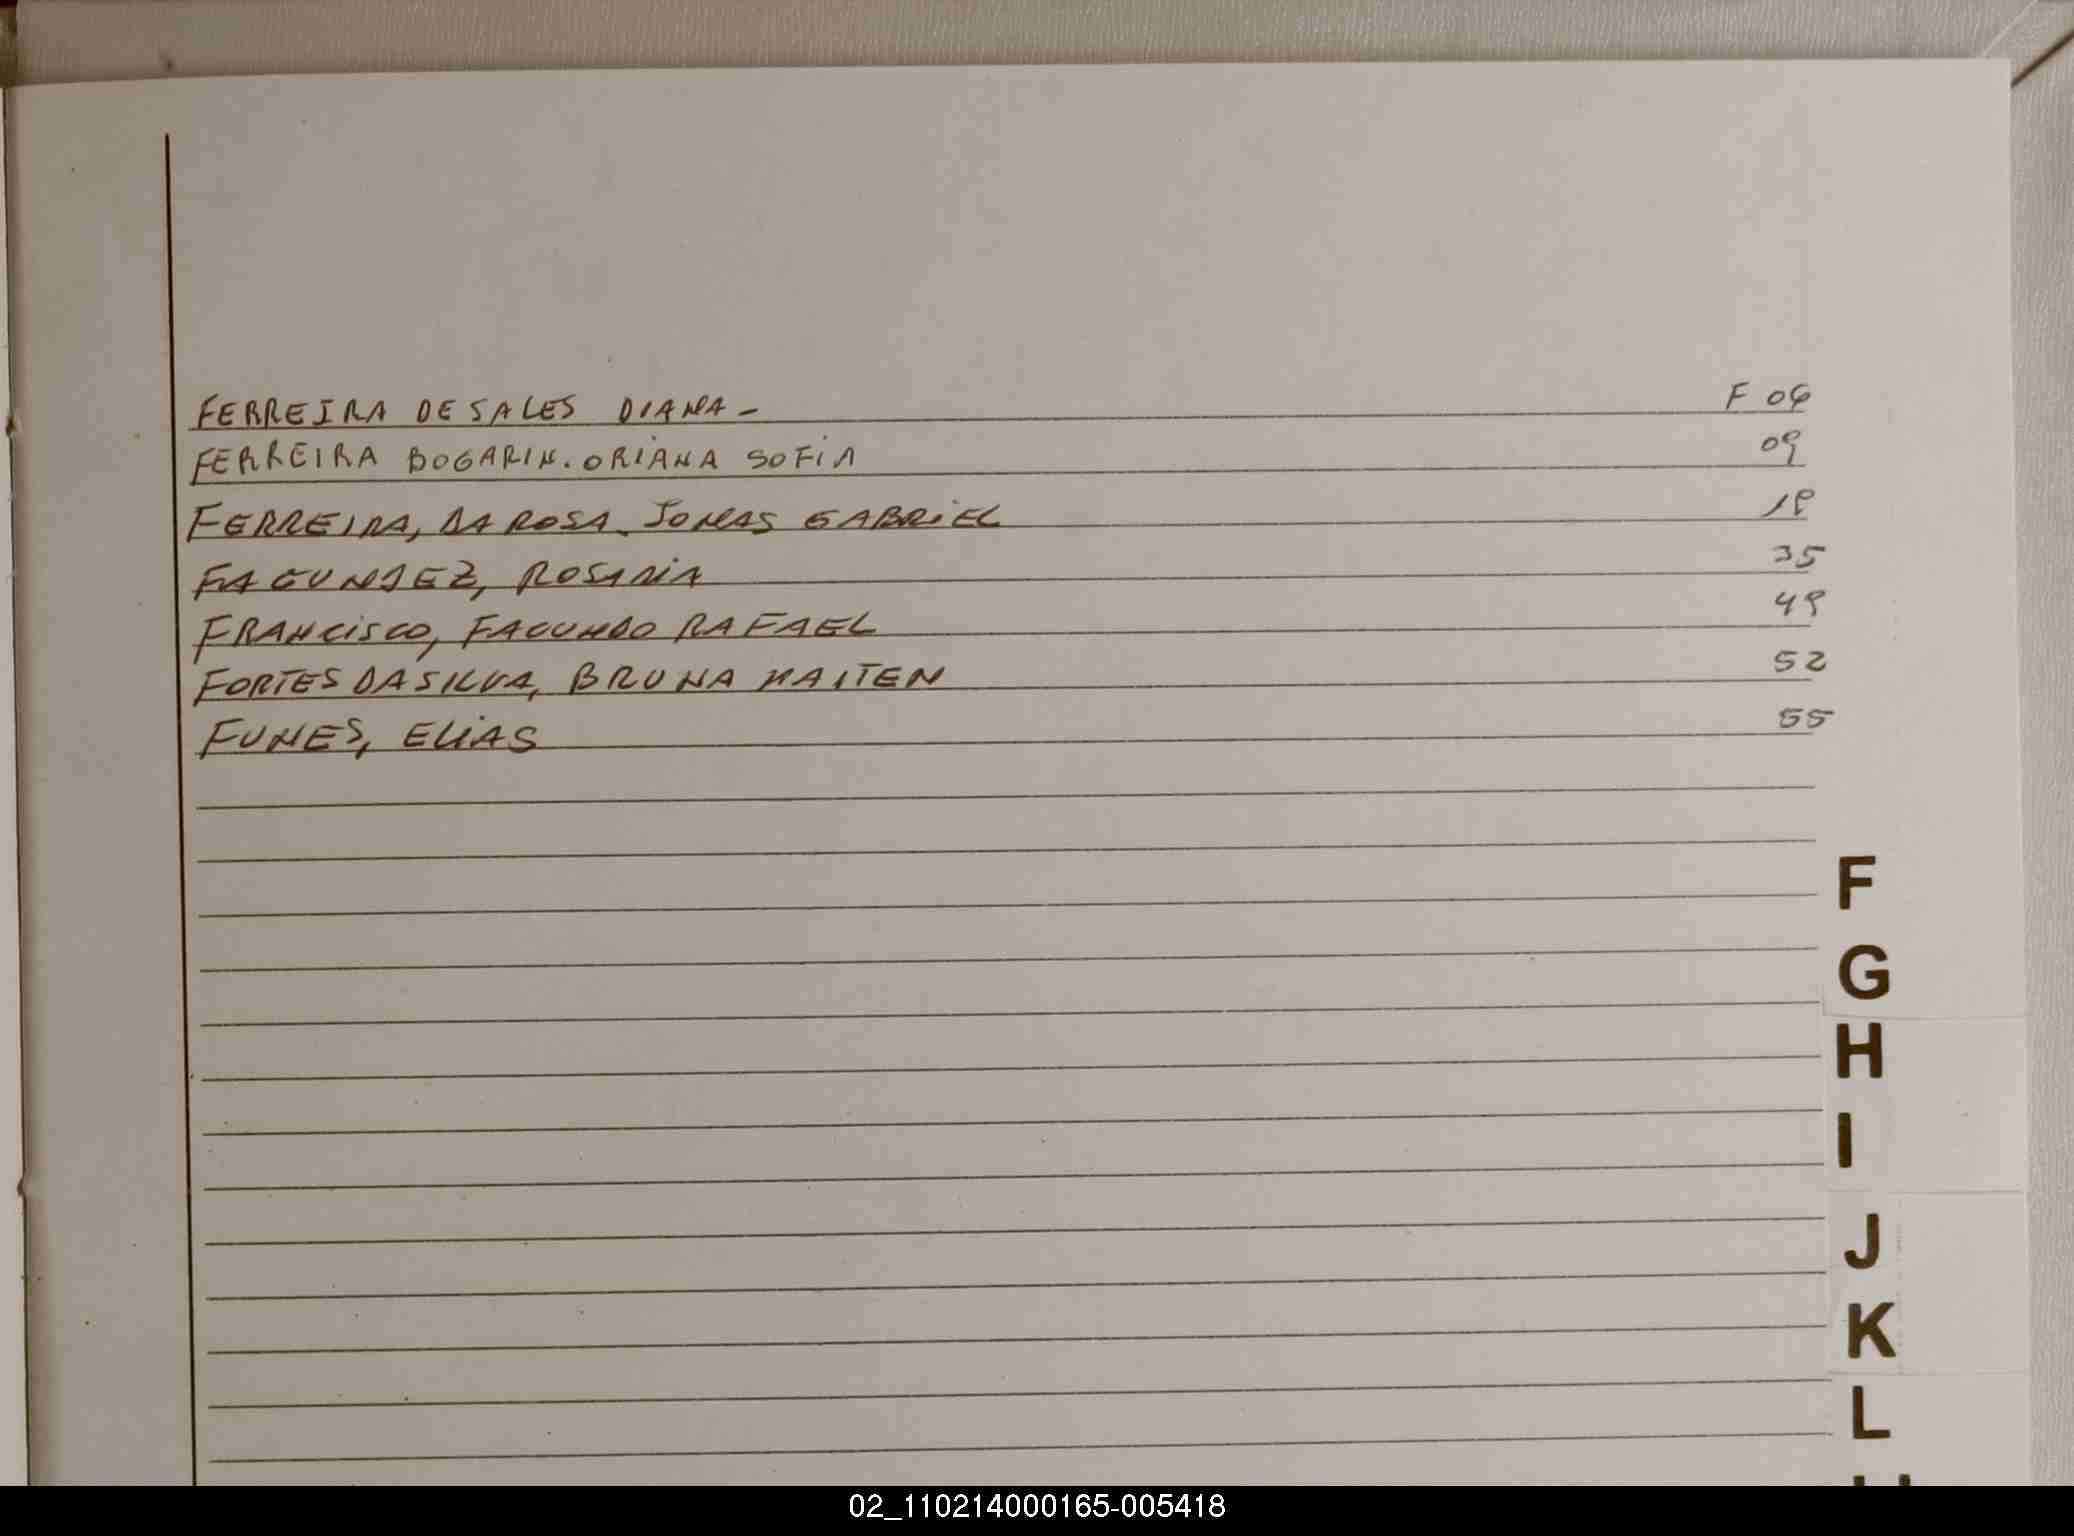 FERREIRA DE SALES DIANA - F 06
FERREIRA BOGARIN. ORIANA SOFIA 09
FERREIRA, DA ROSA. JONAS GABRIEL 18
FAGUNDEZ, ROSARIA 35
FRANCISCO, FACUNDO RAFAEL 49
FORTES DA SILVA, BRUNA MAITEN 52
FUNES, ELIAS 55
F
G
H
I
J
K
L
02_110214000165-005418